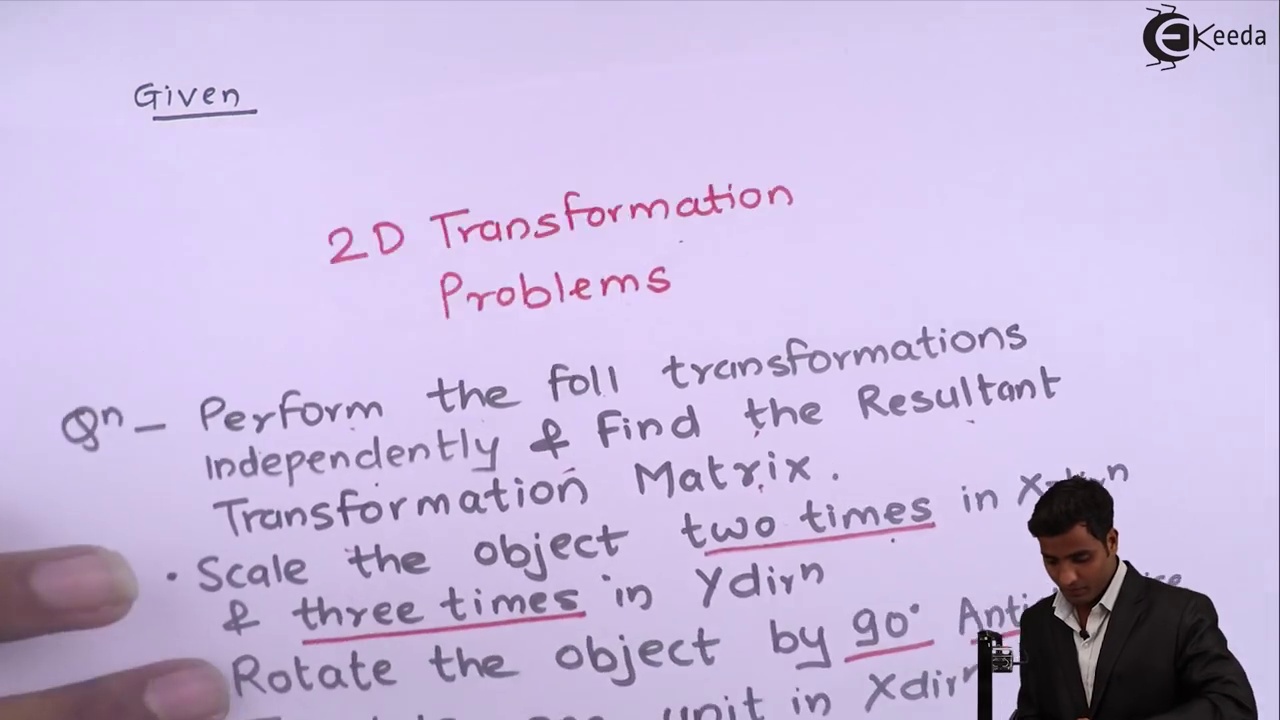 EKeeda
Given
2D Transformation
Problems
Qn - Perform the foll transformations
Independently & Find the Resultant
Transformation Matrix.
• Scale the object two times in X
& three times in Ydirn
Rotate the object by 90° Anti
unit in Xdirn